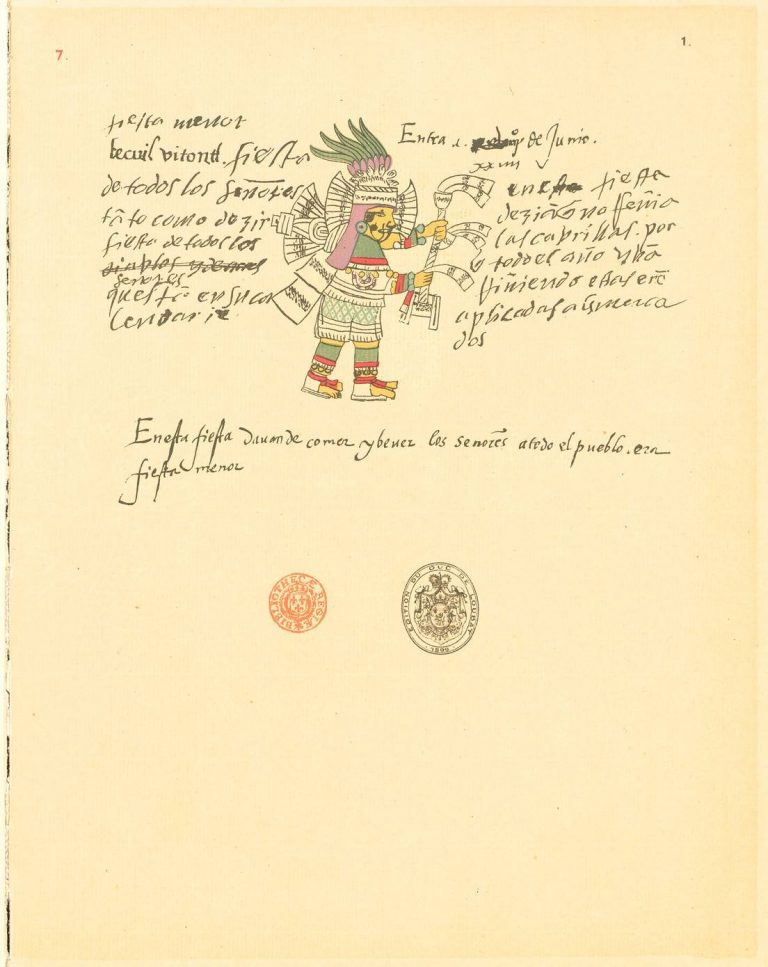 7.
1.
fiesta menor
tecuil vitontl. fiesta
de todos los señores
tāto como dezir
fiesta de todos los
diablos
señores
que estā en su ca
lendario
Entra a de Junio.
xxiiii
en esta fiesta
las caprillas. por
todo el año
viniendo estas
aplicadas a
dos
En esta fiesta dauan de comer y bever los señores a todo el pueblo. era
fiesta menor
BIBLIOTHECÆ REGIÆ
EDITION DU DUC DE LOUBAT
1899